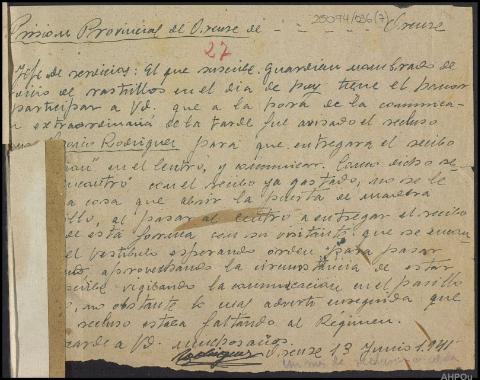 25094/036(7)
Prision Provincial de Orense de - - - - Orense
27
Jefe de servicios: El que suscribe, guardian nombrado de
de rastrillos en el día de hoy tiene el honor
participar a Vd. que a la hora de la comunica-
extraordinaria de la tarde fue avisado el recluso
Rodriguez para que entregara el recibo
en el Centro, y comunicar. Como dicho re-
con el recibo ya gastado, no se le
cosa que abrir la puerta de nuestra
al pasar al centro a entregar el recibo
de esta forma con su visitante que se encon
el vestibulo esperando orden para pasar
aprovechando la circunstancia de estar
vigilando la comunicacion en el pasillo
no obstante lo cual advertí enseguida que
recluso estaba faltando al Régimen.
guarde a Vd. muchos años.
Orense 13 Junio 1.941
Rodriguez
AHPOu